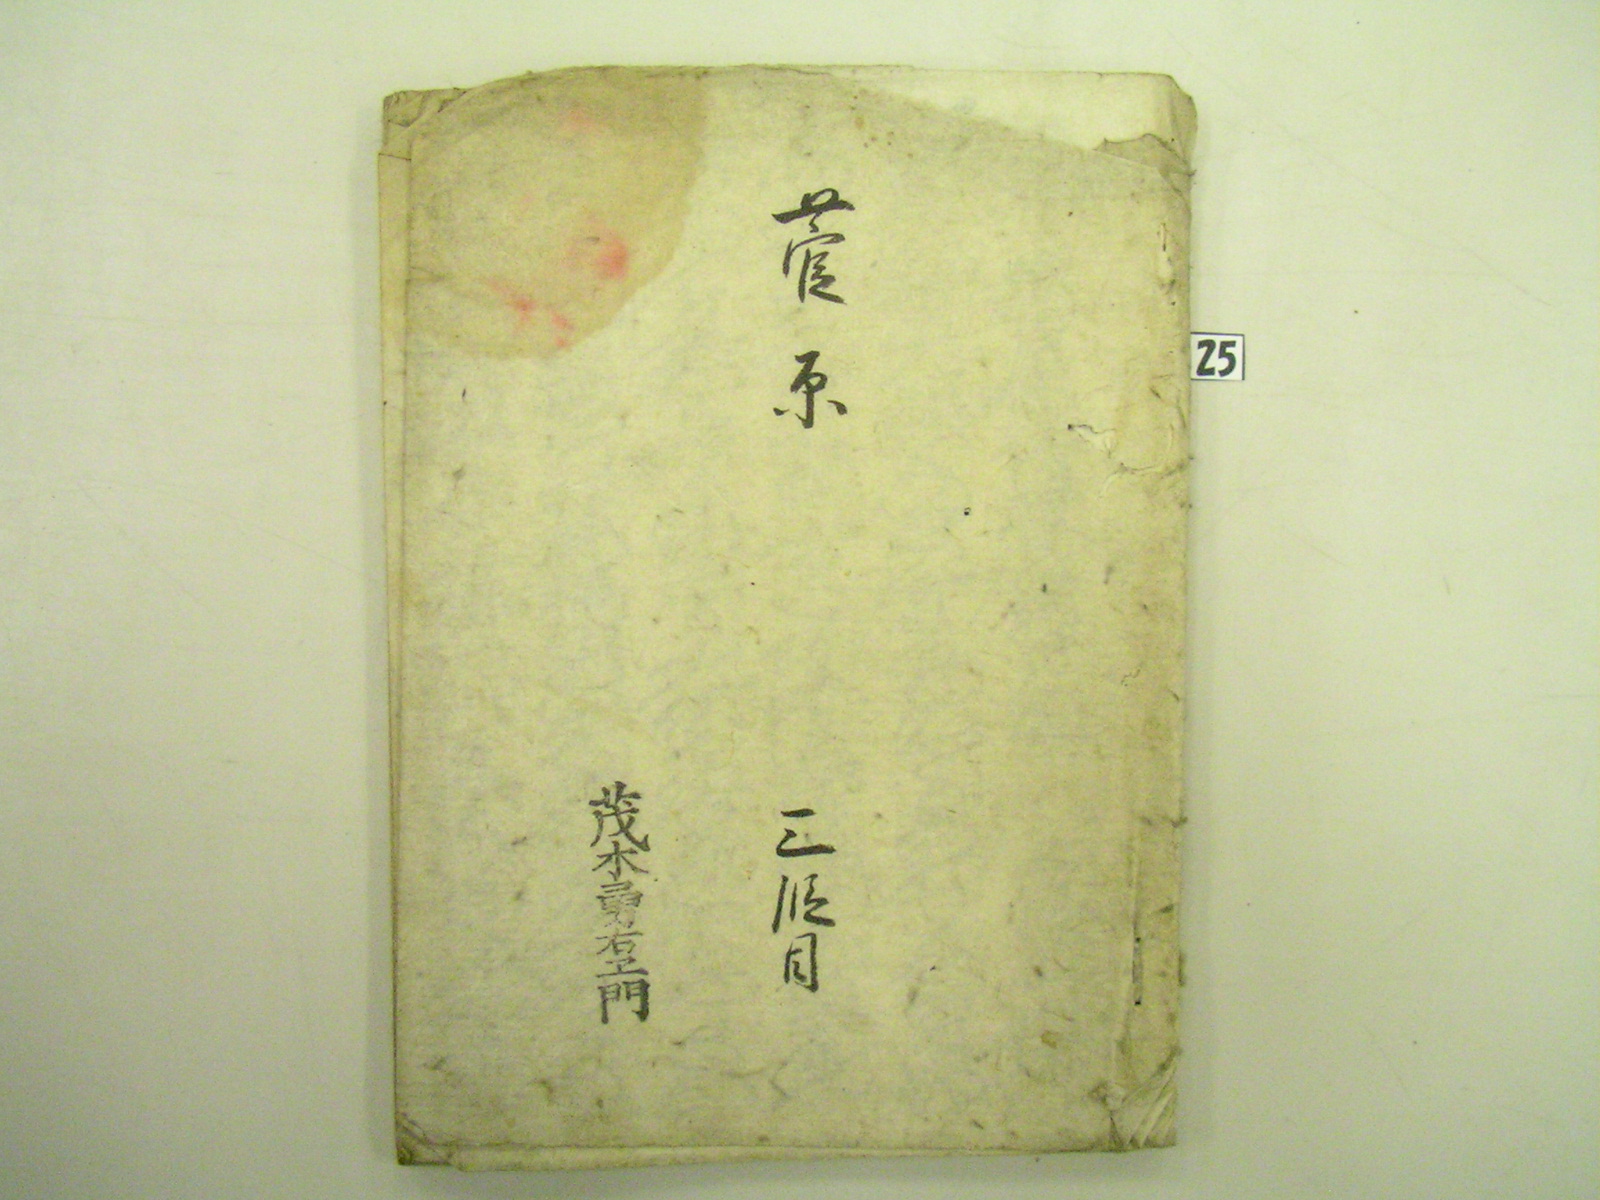 菅原
三段目
茂木勇右エ門
25